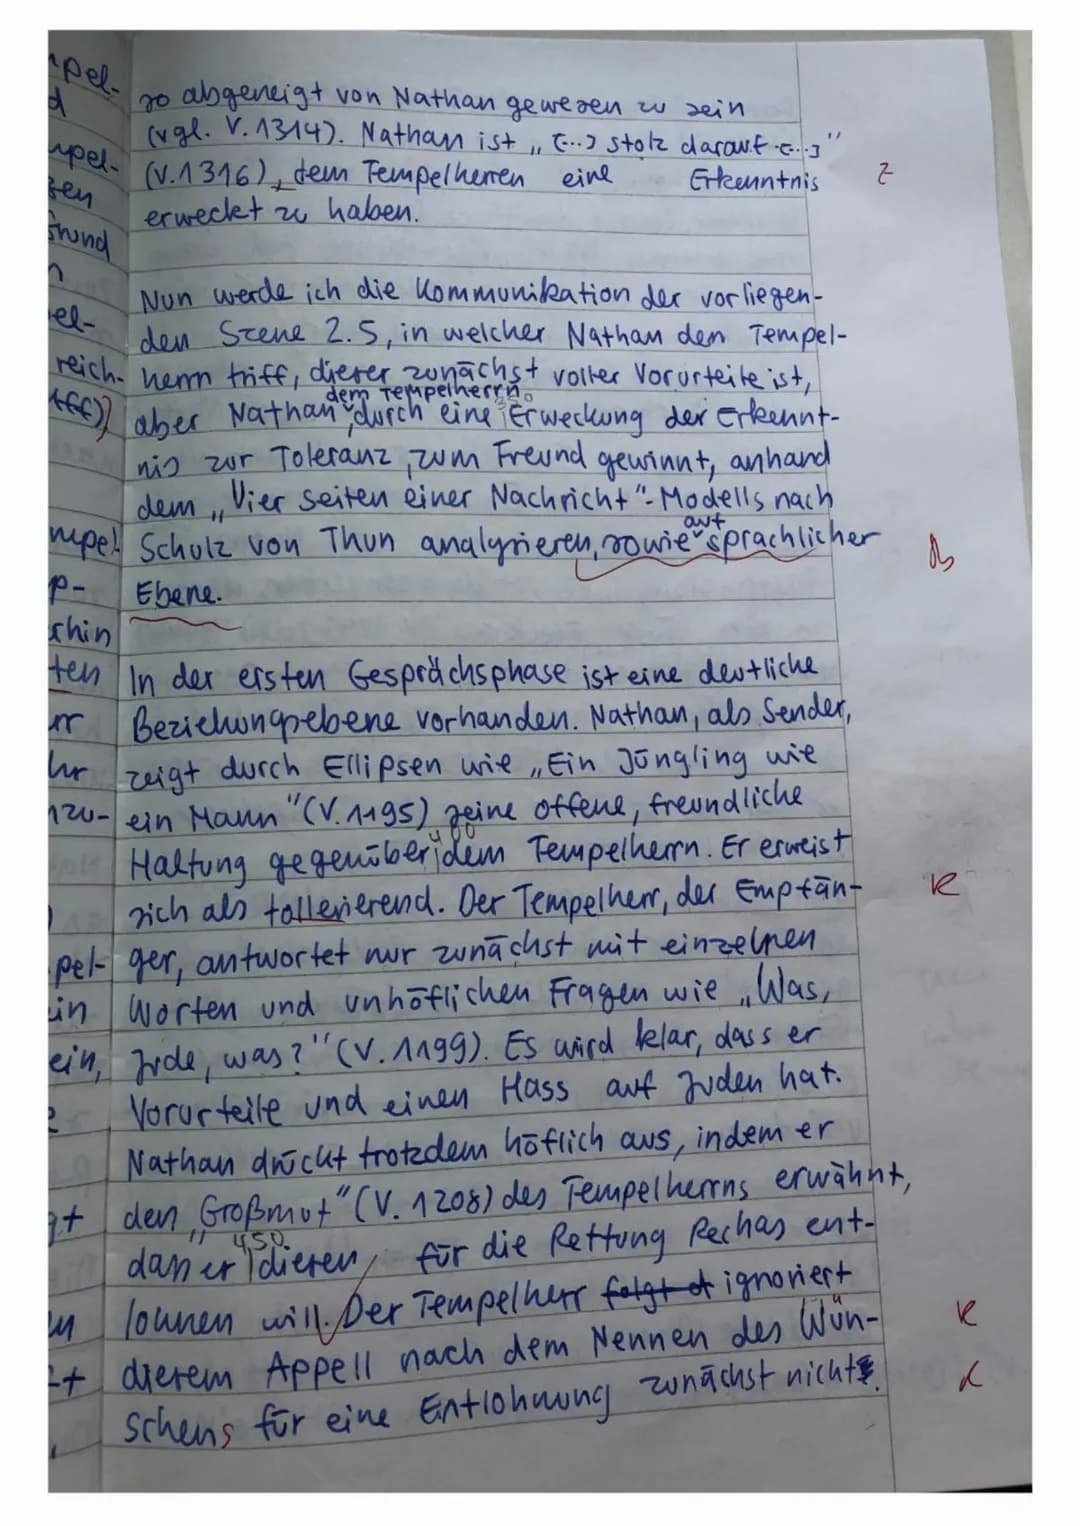 so abgeneigt von Nathan gewesen zu sein
(vgl. V. 1314). Nathan ist „[...] stolz darauf [...]"
(V. 1316), dem Tempelherren eine Erkenntnis
Z
erweckt zu haben.
Nun werde ich die Kommunikation der vorliegen-
den Szene 2.5, in welcher Nathan den Tempel-
herrn triff, dieser zunächst voller Vorurteile ist,
aber Nathan dem Tempelherrn durch eine 350 Erweckung der Erkennt-
nis zur Toleranz, zum Freund gewinnt, anhand
dem „Vier Seiten einer Nachricht"-Modells nach
Schulz von Thun analysieren, sowie auf sprachlicher
Sb
Ebene.
In der ersten Gesprächsphase ist eine deutliche
Beziehungsebene vorhanden. Nathan, als Sender,
zeigt durch Ellipsen wie „Ein Jüngling wie
ein Mann" (V. 1195) seine offene, freundliche
Haltung gegenüber 400 dem Tempelherrn. Er erweist
sich als tollerierend. Der Tempelherr, der Empfän-
R
ger, antwortet nur zunächst mit einzelnen
Worten und unhöflichen Fragen wie „Was,
Jude, was?" (V. 1199). Es wird klar, dass er
Vorurteile und einen Hass auf Juden hat.
Nathan drückt trotzdem höflich aus, indem er
den „Großmut" (V. 1208) des Tempelherrns erwähnt,
dass er 450 diesen für die Rettung Rechas ent-
lohnen will. Der Tempelherr folgt ignoriert
diesem Appell nach dem Nennen des Wün-
R
schens für eine Entlohnung zunächst nicht.
pel-
d
mpel-
sen
Grund
n
el-
reich-
tff)
mpel
p-
chin
ten
rr
hr
nzu-
pel-
ein
ein,
gt